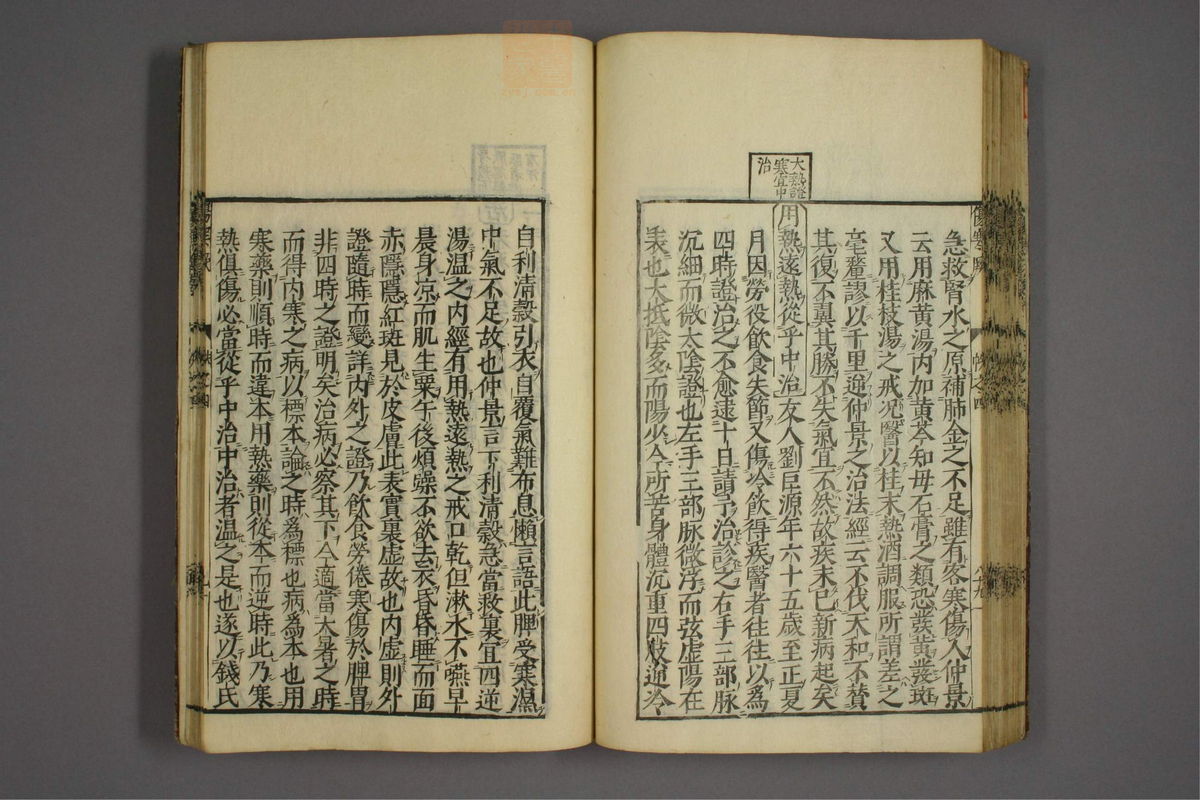 大熱證
寒宜中
治
急救腎水之原補肺金之不足雖有客寒傷人仲景
云用麻黄湯内加黄芩知母石膏之類恐發黄發斑
又用桂枝湯之戒况醫以桂末熱酒調服所謂差之
毫釐謬以千里逆仲景之治法經云不伐天和不贊
其復不翼其勝不失氣宜不然故疾未已新病起矣
用熱遠熱從乎中治友人劉巨源年六十五歳至正夏
月因勞役飲食失節又傷冷飲得疾醫者往往以爲
四時證治之不愈逮十日請予治診之右手三部脉
沉細而微太陰證也左手三部脉微浮而弦虚陽在
表也大抵陰多而陽少今所苦身體沉重四肢逆冷
自利清穀引衣自覆氣難布息懶言語此脾受寒濕
中氣不足故也仲景言下利清穀急當救裏宜四逆
湯温之内經有用熱遠熱之戒口乾但漱水不嚥早
晨身凉而肌生粟午後煩躁不欲去衣昏昏睡而面
赤隱隱紅斑見於皮膚此表實裏虚故也内虚則外
證隨時而變詳内外之證乃飲食勞倦寒傷於脾胃
非四時之證明矣治病必察其下今適當大暑之時
而得内寒之病以標本論之時爲標也病爲本也用
寒藥則順時而違本用熱藥則從本而逆時此乃寒
熱俱傷必當從乎中治中治者温之是也遂以錢氏